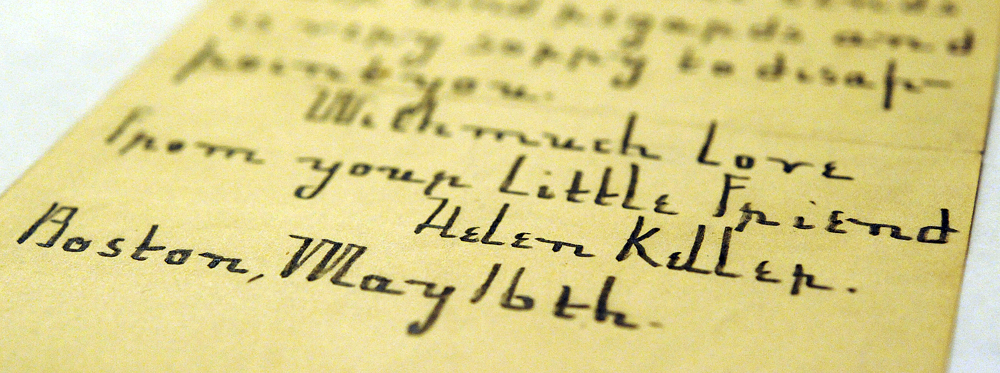 kind regards and
is very sorry to disap-
point you.
With much Love
From your Little Friend
Helen Keller.
Boston, May 16th.